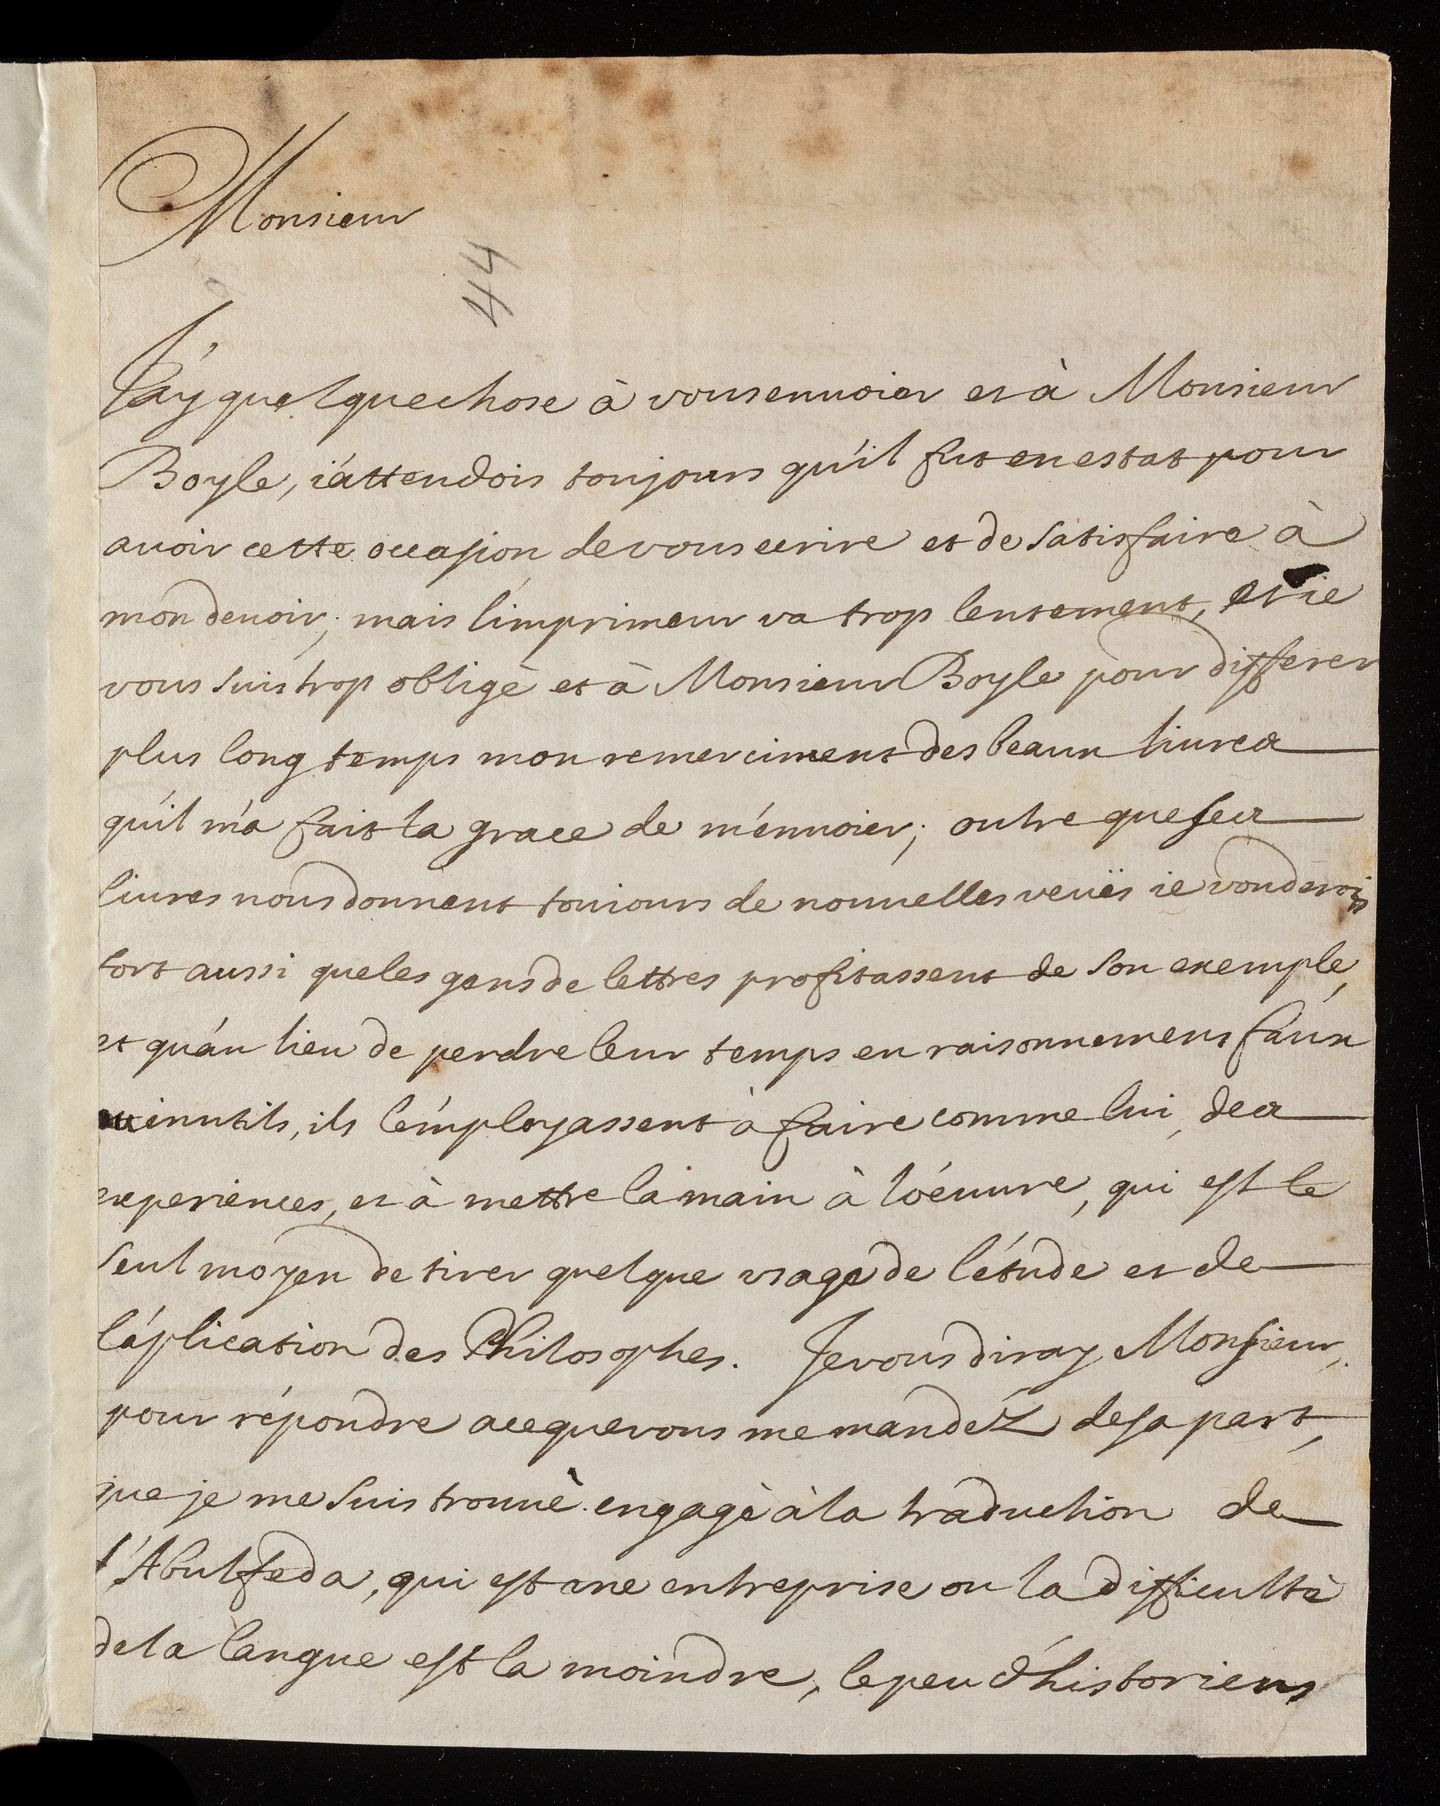 Monsieur
44
J'ay quelque chose à vous enuoier et à Monsieur
Boyle, i'attendois toujours qu'il fut en estat pour
auoir cette occasion de vous ecrire et de satisfaire à
mon deuoir; mais l'imprimeur va trop lentement, et ie
vous suis trop obligè et à Monsieur Boyle pour differer
plus long temps mon remerciment des beaux liures
qu'il m'a fait la grace de m'enuoier; outre que ses
liures nous donnent toujours de nouuelles veuës ie vouderois
fort aussi que les gens de lettres profitassent de son exemple,
et qu'au lieu de perdre leur temps en raisonnemens faux
inutils, ils l'employassent à faire comme lui, des
experiences, et à mettre la main à l'oéuure, qui est le
seul moyen de tirer quelque vsage de l'étude et de
l'aplication des Philosophes. Je vous diray Monsieur,
pour répondre a ce que vous me mandéz de sa part,
que je me suis trouuè engagè à la traduction de
l'Abulfeda, qui est une entreprise ou la difficultè
de la langue est la moindre, le peu d'historiens